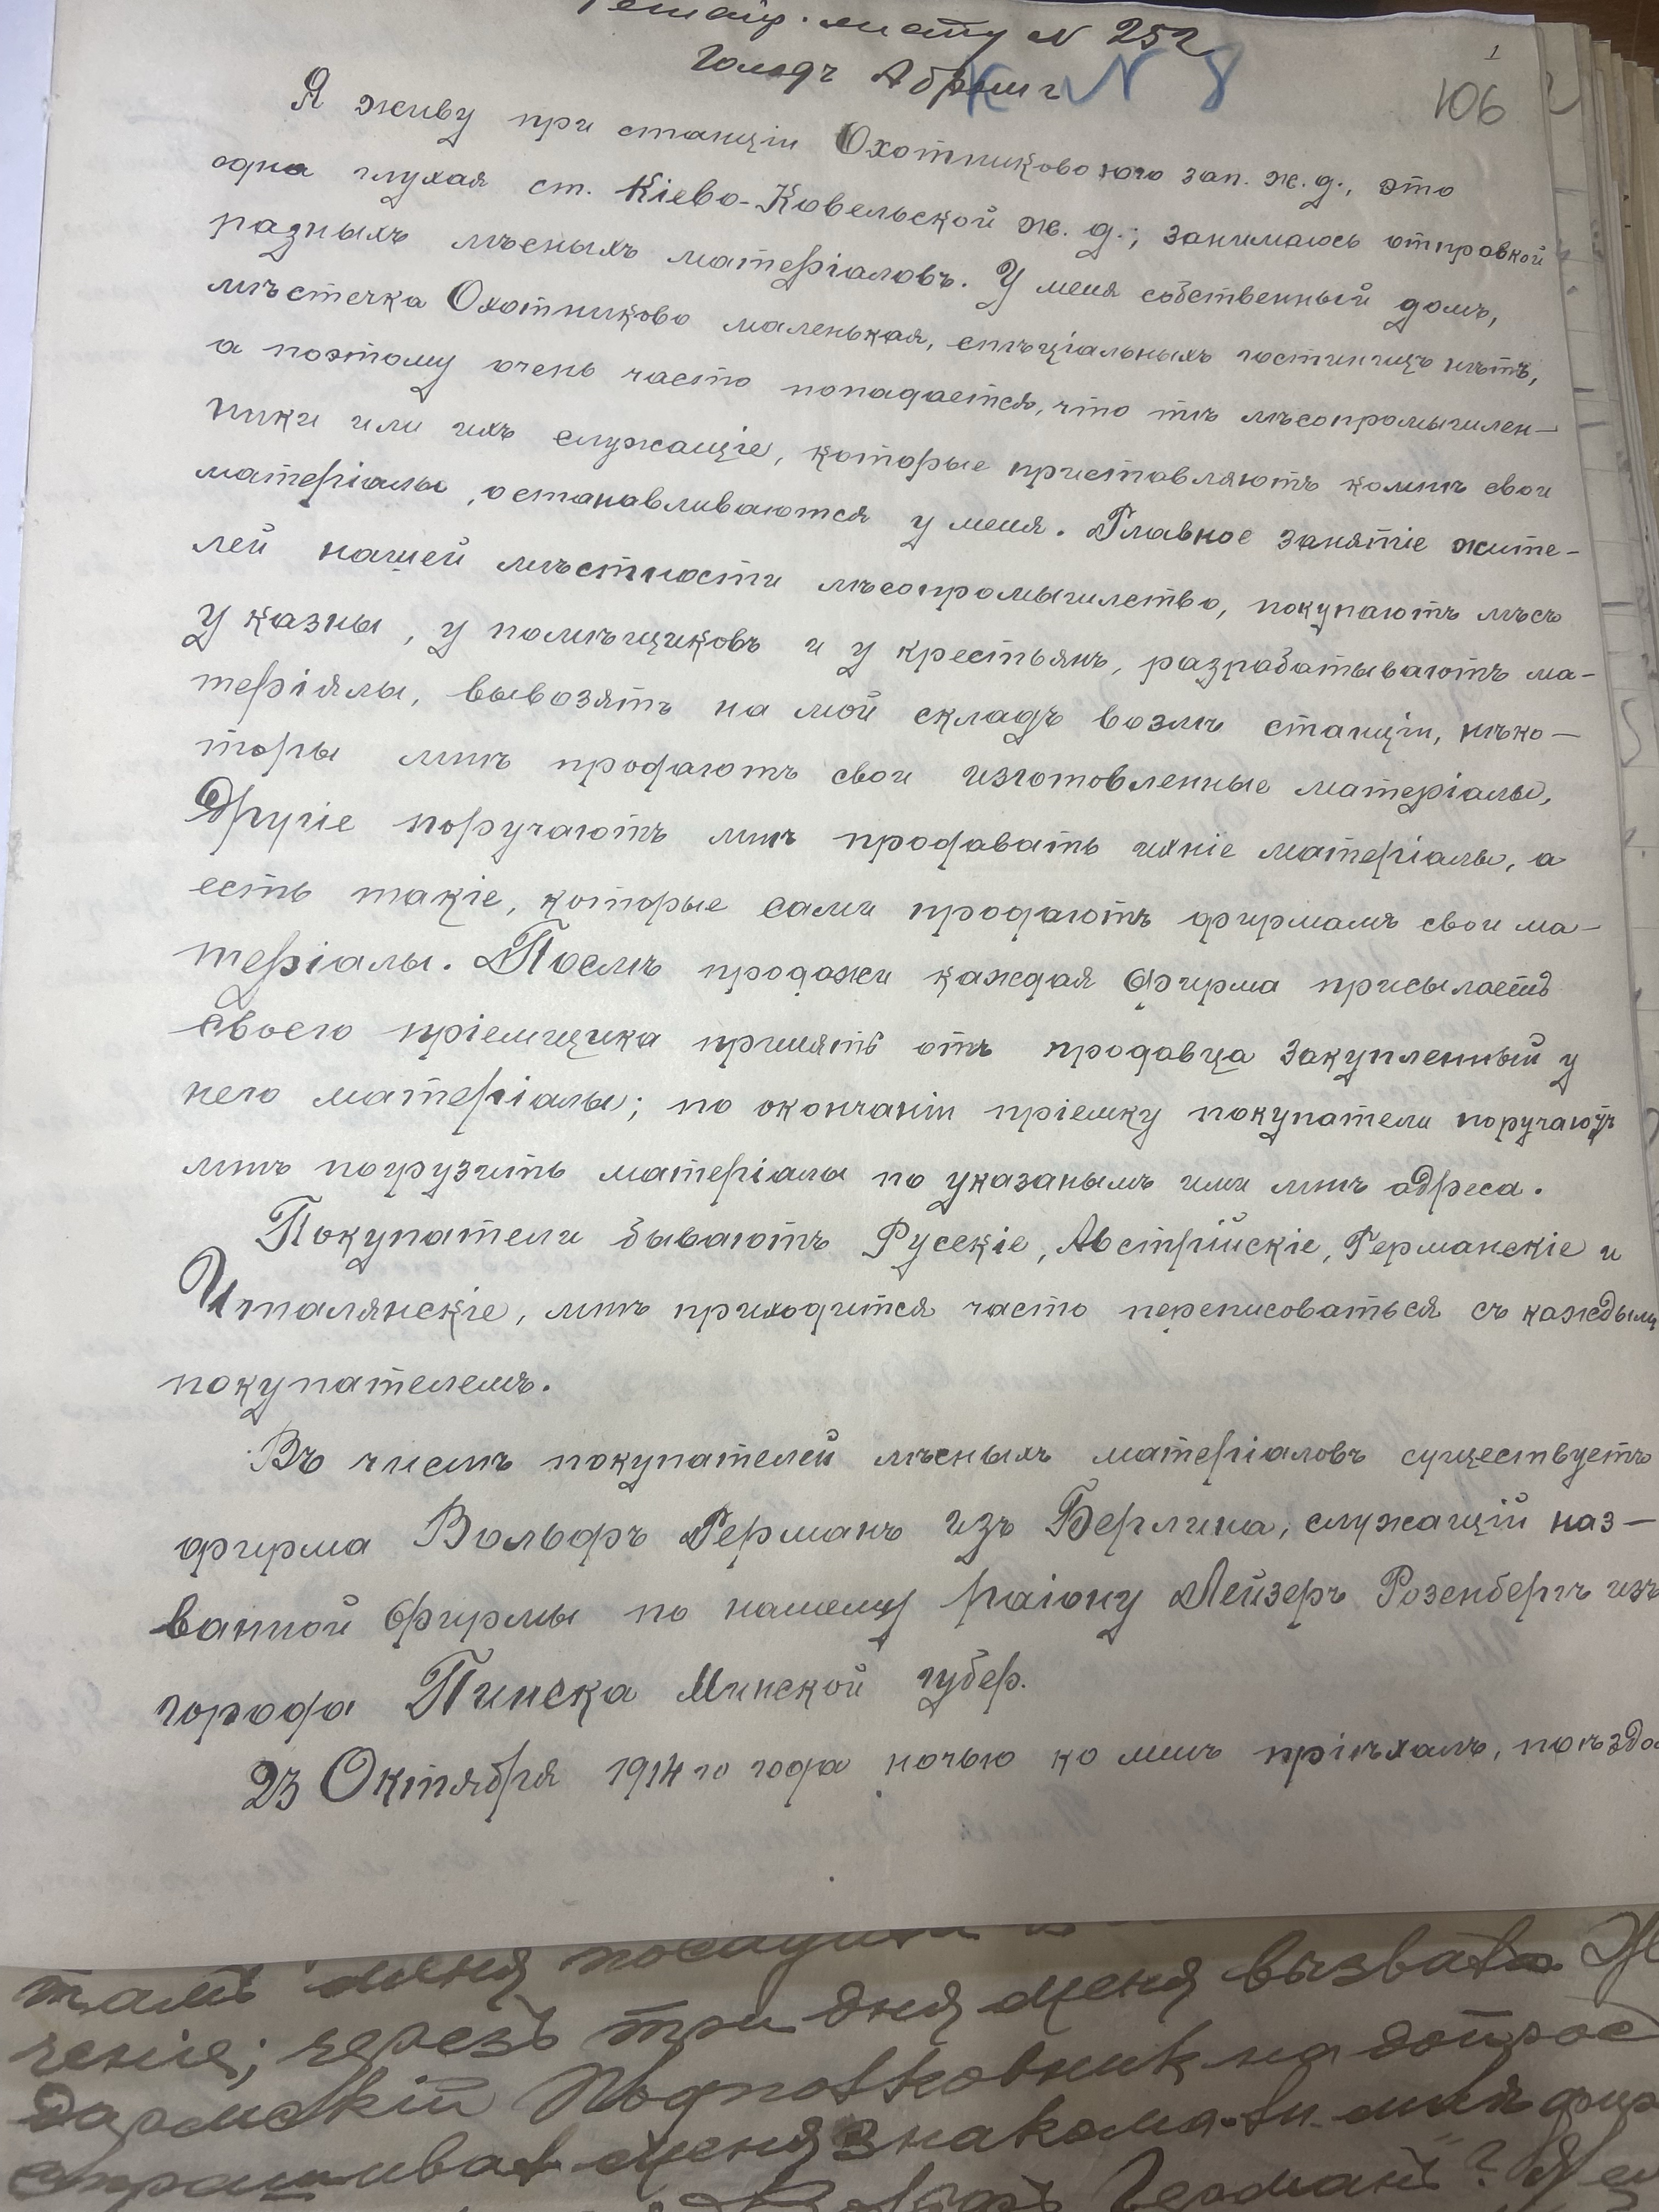 листу N 252
Гольдъ Абрамъ
К N 8
1
106
Я живу при станціи Охотниково юго зап. ж. д., это
одна глухая ст. Кіево-Ковельской ж. д.; занимаюсь отправкой
разныхъ лѣсныхъ матеріаловъ. У меня собственный домъ,
мѣстечка Охотниково маленькая, спѣціальныхъ гостиницъ нѣтъ,
а поэтому очень часто попадается, что тѣ лѣсопромышлен-
ники или ихъ служащіе, которые приставляютъ ко мнѣ свои
матеріалы, останавливаются у меня. Главное занятіе жите-
лей нашей мѣстности лѣсопромышлество, покупаютъ лѣсъ
у казны, у помѣщиковъ и у крестьянъ, разрабатываютъ ма-
теріялы, вывозятъ на мой складъ возлѣ станціи, нѣко-
торы мнѣ продаютъ свои изготовленные матеріалы,
Другіе поручаютъ мнѣ продавать ихніе матеріалы, а
есть такіе, которые сами продаютъ фирмамъ свои ма-
теріалы. Послѣ продажи каждая Фирма присылаетъ
своего пріемщика принять отъ продавца закупленный у
него матеріалы; по окончаніи пріемку покупатели поручаютъ
мнѣ погрузить матеріалы по указанымъ ими мнѣ адреса.
Покупатели бываютъ Русскіе, Австрійскіе, Германскіе и
Италянскіе, мнѣ приходится часто переписоваться съ каждымъ
покупателемъ.
Въ числѣ покупателей лѣсныхъ матеріаловъ существуетъ
фирма Вольфъ Германъ изъ Берлина, служащій наз-
ванной Фирмы по нашему раіону Лейзеръ Розенбергъ изъ
города Пинска Минской губер.
23 Октября 1914 го года ночью ко мнѣ пріѣхалъ, поѣздо
тамъ меня посадили
ченіе; черезъ три дня меня вызвалъ Ж
дармскій Подполковникъ на допрос
спрашивал меня знакома-ли мнѣ фир
Вольфъ Германъ"? Я